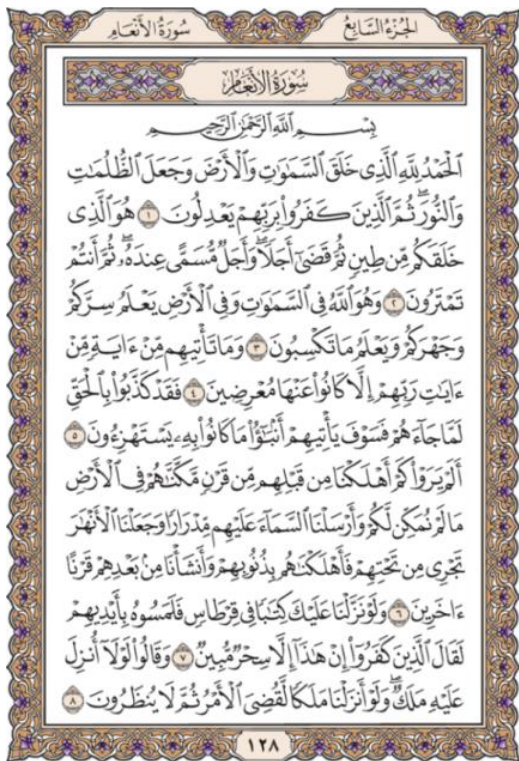 سُورَةُ الأَنْعَامِ
الجُزْءُ السَّابِعُ
سُورَةُ الأَنْعَامِ
بِسْمِ ٱللَّهِ ٱلرَّحْمَٰنِ ٱلرَّحِيمِ
ٱلْحَمْدُ لِلَّهِ ٱلَّذِى خَلَقَ ٱلسَّمَٰوَٰتِ وَٱلْأَرْضَ وَجَعَلَ ٱلظُّلُمَٰتِ
وَٱلنُّورَ ۖ ثُمَّ ٱلَّذِينَ كَفَرُوا۟ بِرَبِّهِمْ يَعْدِلُونَ ١ هُوَ ٱلَّذِى
خَلَقَكُم مِّن طِينٍ ثُمَّ قَضَىٰٓ أَجَلًا ۖ وَأَجَلٌ مُّسَمًّى عِندَهُۥ ۖ ثُمَّ أَنتُمْ
تَمْتَرُونَ ٢ وَهُوَ ٱللَّهُ فِى ٱلسَّمَٰوَٰتِ وَفِى ٱلْأَرْضِ ۖ يَعْلَمُ سِرَّكُمْ
وَجَهْرَكُمْ وَيَعْلَمُ مَا تَكْسِبُونَ ٣ وَمَا تَأْتِيهِم مِّنْ ءَايَةٍ مِّنْ
ءَايَٰتِ رَبِّهِمْ إِلَّا كَانُوا۟ عَنْهَا مُعْرِضِينَ ٤ فَقَدْ كَذَّبُوا۟ بِٱلْحَقِّ
لَمَّا جَآءَهُمْ ۖ فَسَوْفَ يَأْتِيهِمْ أَنۢبَٰٓؤُا۟ مَا كَانُوا۟ بِهِۦ يَسْتَهْزِءُونَ ٥
أَلَمْ يَرَوْا۟ كَمْ أَهْلَكْنَا مِن قَبْلِهِم مِّن قَرْنٍ مَّكَّنَّٰهُمْ فِى ٱلْأَرْضِ
مَا لَمْ نُمَكِّن لَّكُمْ وَأَرْسَلْنَا ٱلسَّمَآءَ عَلَيْهِم مِّدْرَارًا وَجَعَلْنَا ٱلْأَنْهَٰرَ
تَجْرِى مِن تَحْتِهِمْ فَأَهْلَكْنَٰهُم بِذُنُوبِهِمْ وَأَنشَأْنَا مِنۢ بَعْدِهِمْ قَرْنًا
ءَاخَرِينَ ٦ وَلَوْ نَزَّلْنَا عَلَيْكَ كِتَٰبًا فِى قِرْطَاسٍ فَلَمَسُوهُ بِأَيْدِيهِمْ
لَقَالَ ٱلَّذِينَ كَفَرُوٓا۟ إِنْ هَٰذَآ إِلَّا سِحْرٌ مُّبِينٌ ٧ وَقَالُوا۟ لَوْلَآ أُنزِلَ
عَلَيْهِ مَلَكٌ ۖ وَلَوْ أَنزَلْنَا مَلَكًا لَّقُضِىَ ٱلْأَمْرُ ثُمَّ لَا يُنظَرُونَ ٨
١٢٨